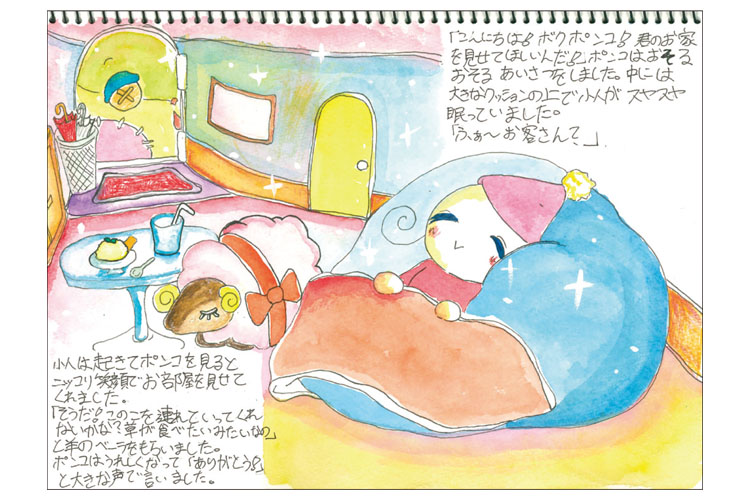 「こんにちは♪ ボク ポンコ♪ 君のお家
を見せてほしいんだ♪」ポンコはおそる
おそる あいさつをしました。中には
大きなクッションの上で小人が スヤスヤ
眠っていました。
「ふぁ〜 お客さんて?」
小人は起きてポンコを見ると
ニッコリ笑顔でお部屋を見せて
くれました。
「そうだ♪ このこを連れていってくれ
ないかな?草が食べたいみたいなの」
と羊のベーラをもらいました。
ポンコはうれしくなって「ありがとう♪」
と大きな声で言いました。